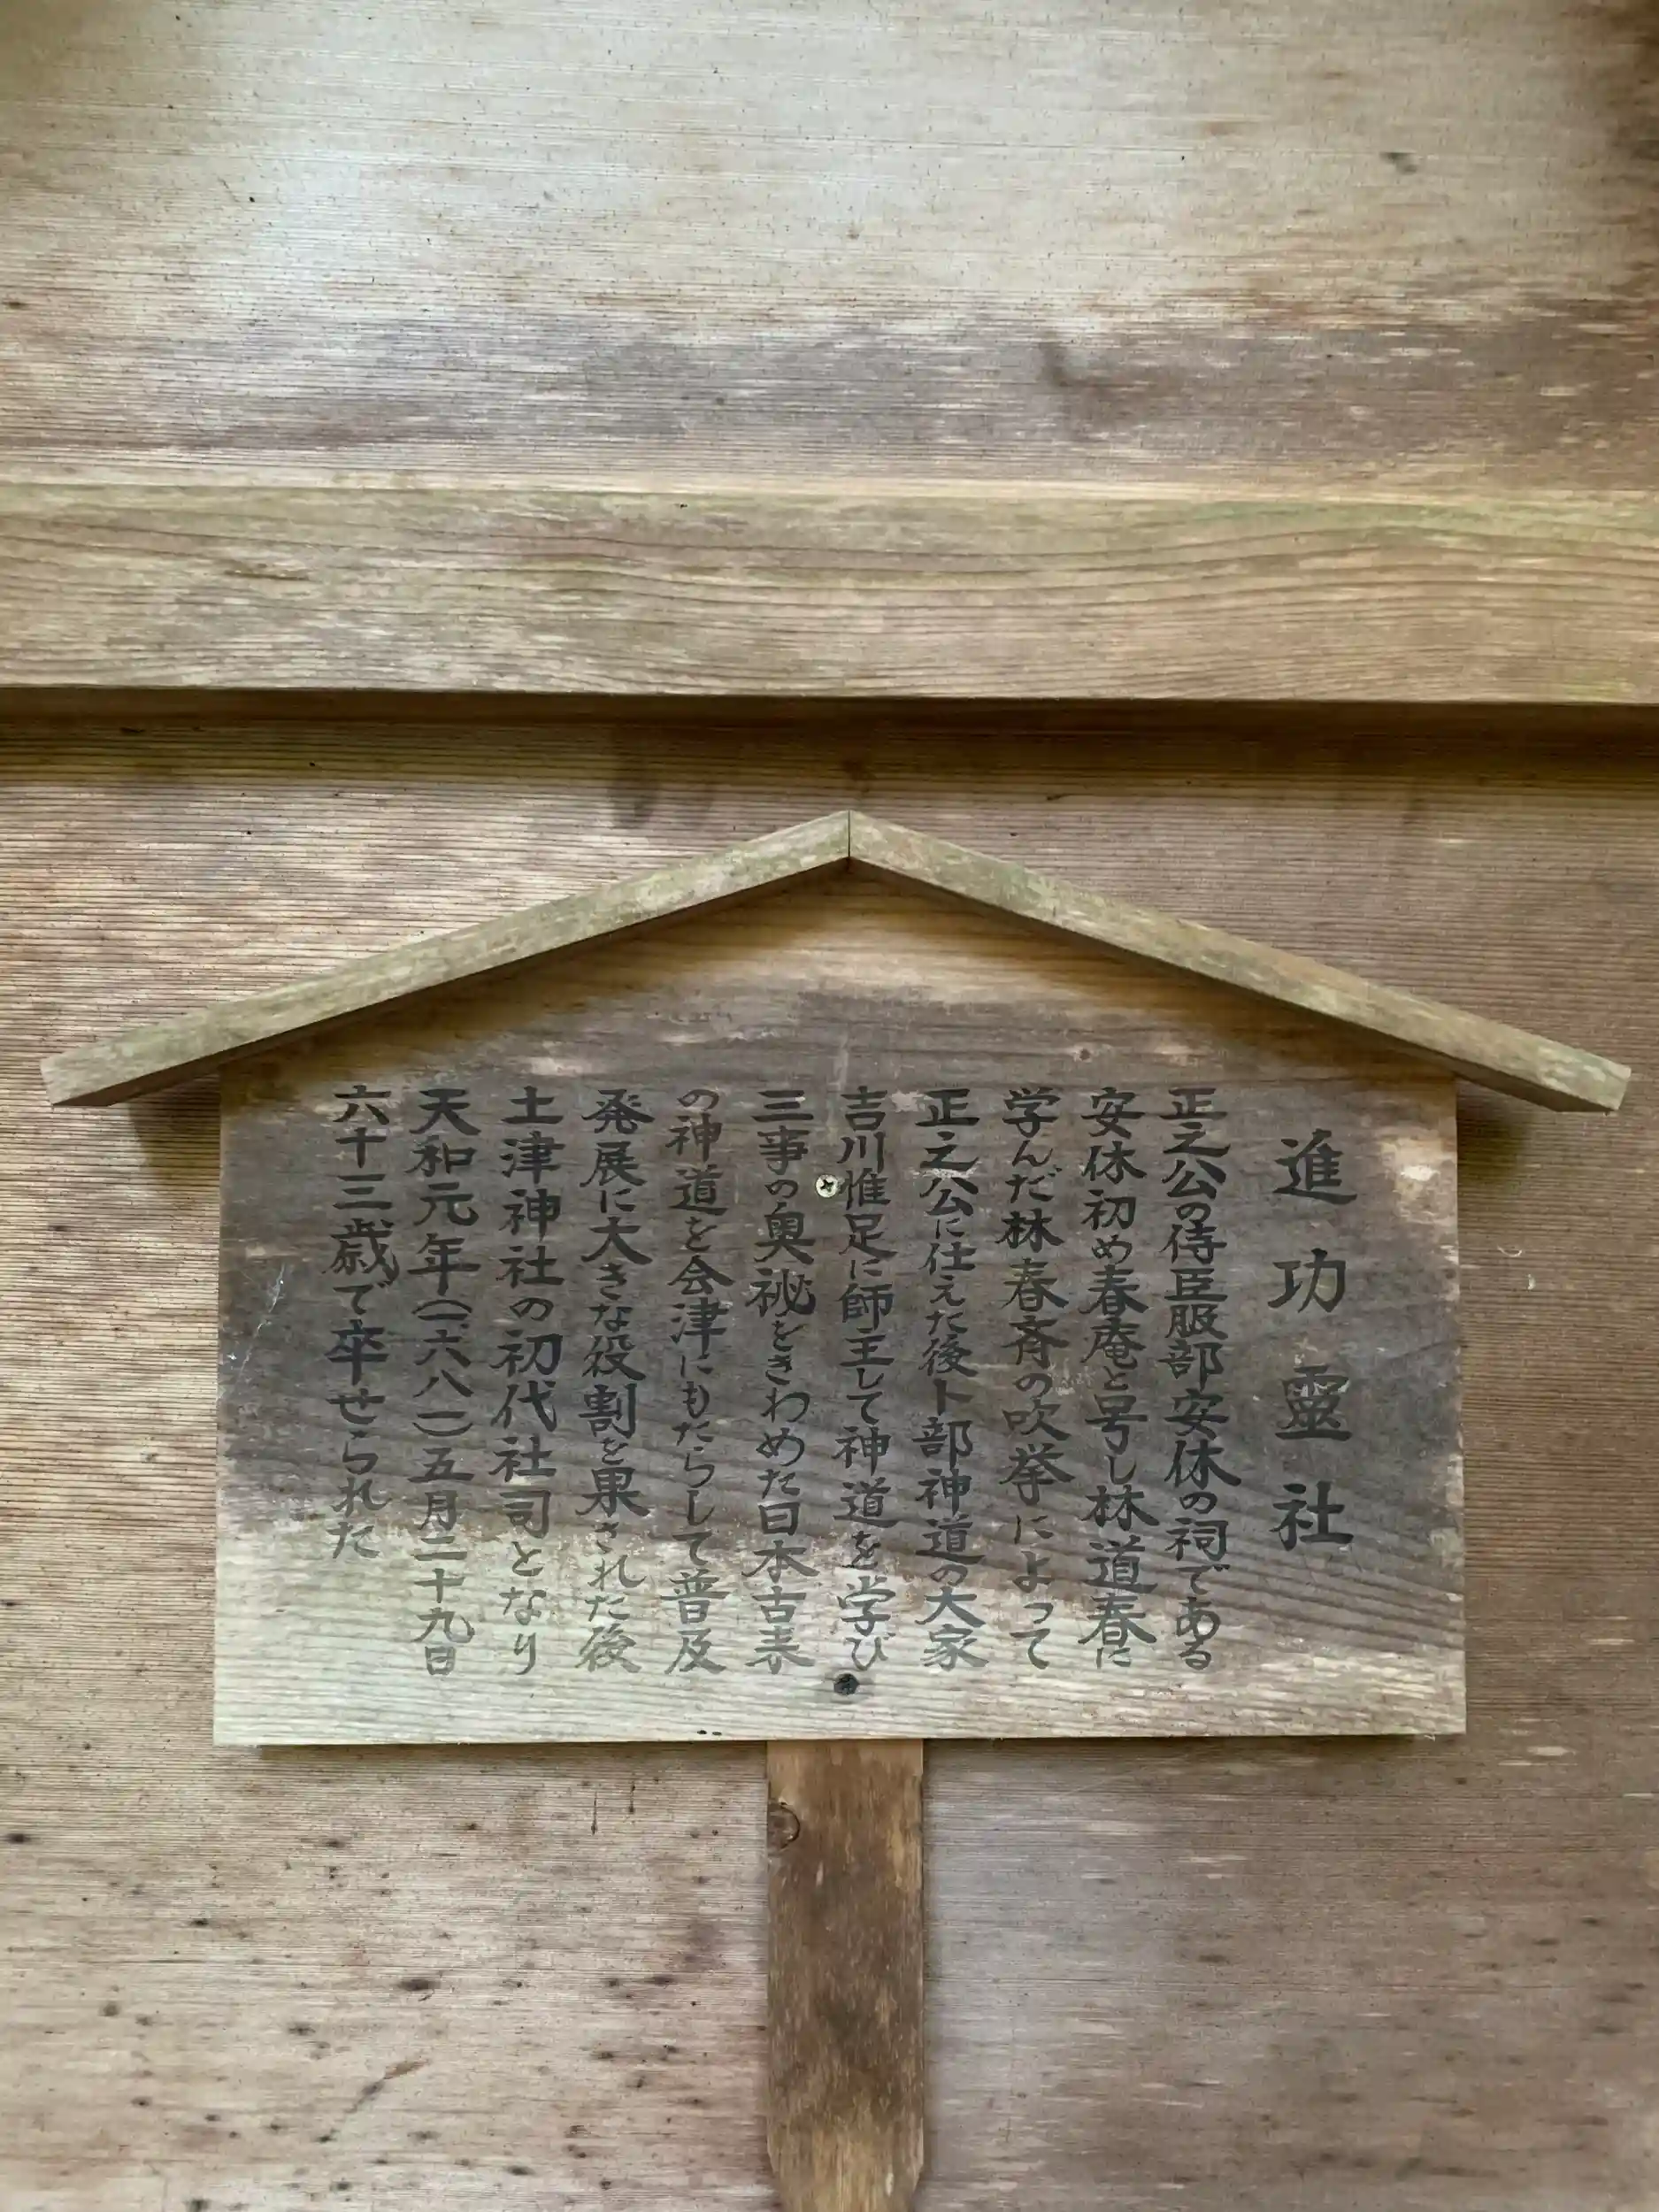 進功靈社
正之公の侍臣服部安休の祠である
安休初め春庵と号し林道春に
学んだ林春斉の吹挙によって
正之公に仕えた後卜部神道の大家
吉川惟足に師主して神道を学び
三事の奥祕をきわめた日本古来
の神道を会津にもたらして普及
発展に大きな役割を果された後
土津神社の初代社司となり
天和元年(一六八一)五月二十九日
六十三歳で卒せられた